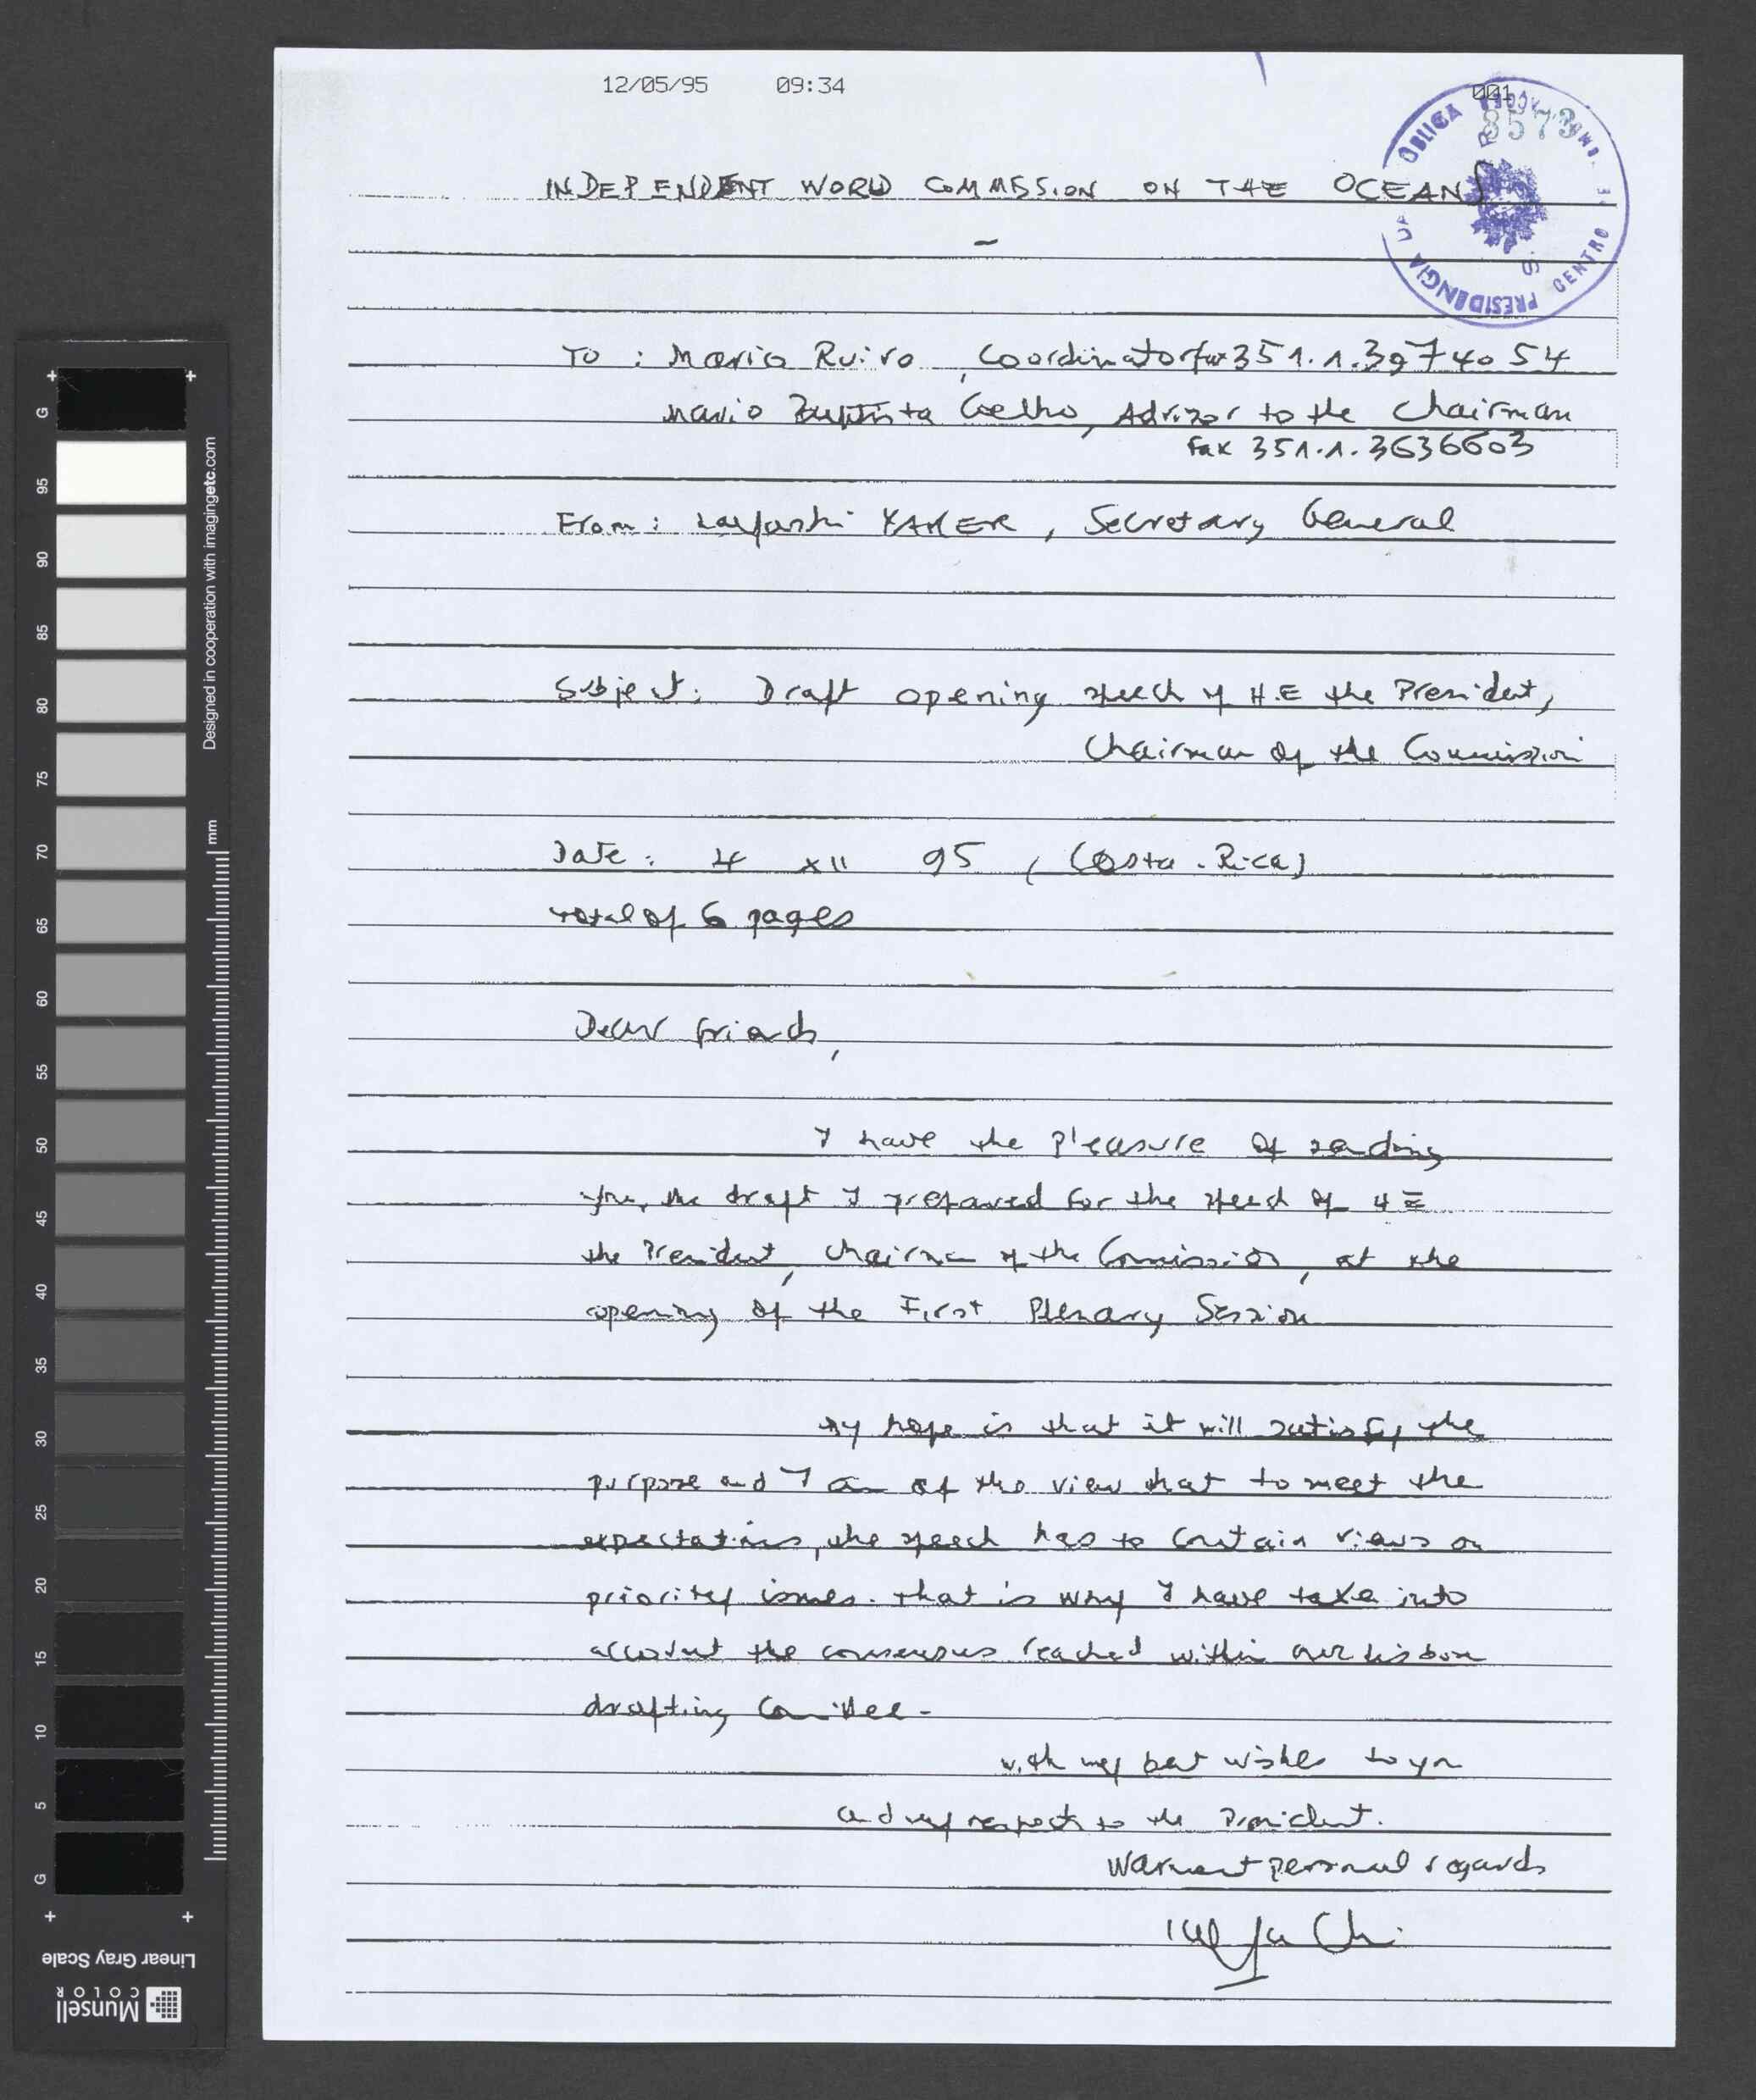 12/05/95 09:34 001
8573
PRESIDÊNCIA DA REPÚBLICA
CENTRO
INDEPENDENT WORLD COMMISSION ON THE OCEANS
To : Mario Ruivo, Coordinator fax 351.1.3974054
Mario Baptista Coelho, Advizor to the Chairman
Fax 351.1.3636603
From: Layashi YAKER, Secretary General
Subject: Draft opening speech of H.E the President,
Chairman of the Commission
Date: 4 XII 95, (Costa-Rica)
total of 6 pages
Dear friends,
I have the pleasure of sending
you, the draft I prepared for the speech of HE
the President, Chairman of the Commission, at the
opening of the First Plenary Session
My hope is that it will satisfy the
purpose and I am of the view that to meet the
expectations, the speech has to contain views on
priority issues. That is why I have take into
account the consensus reached within our Lisbon
drafting Comittee -
with my best wishes to you
and my respects to the President.
Warmest personal regards
Designed in cooperation with imagingetc.com
mm
G 95 90 85 80 75 70 65 60 55 50 45 40 35 30 25 20 15 10 5 G
Linear Gray Scale
Munsell
COLOR